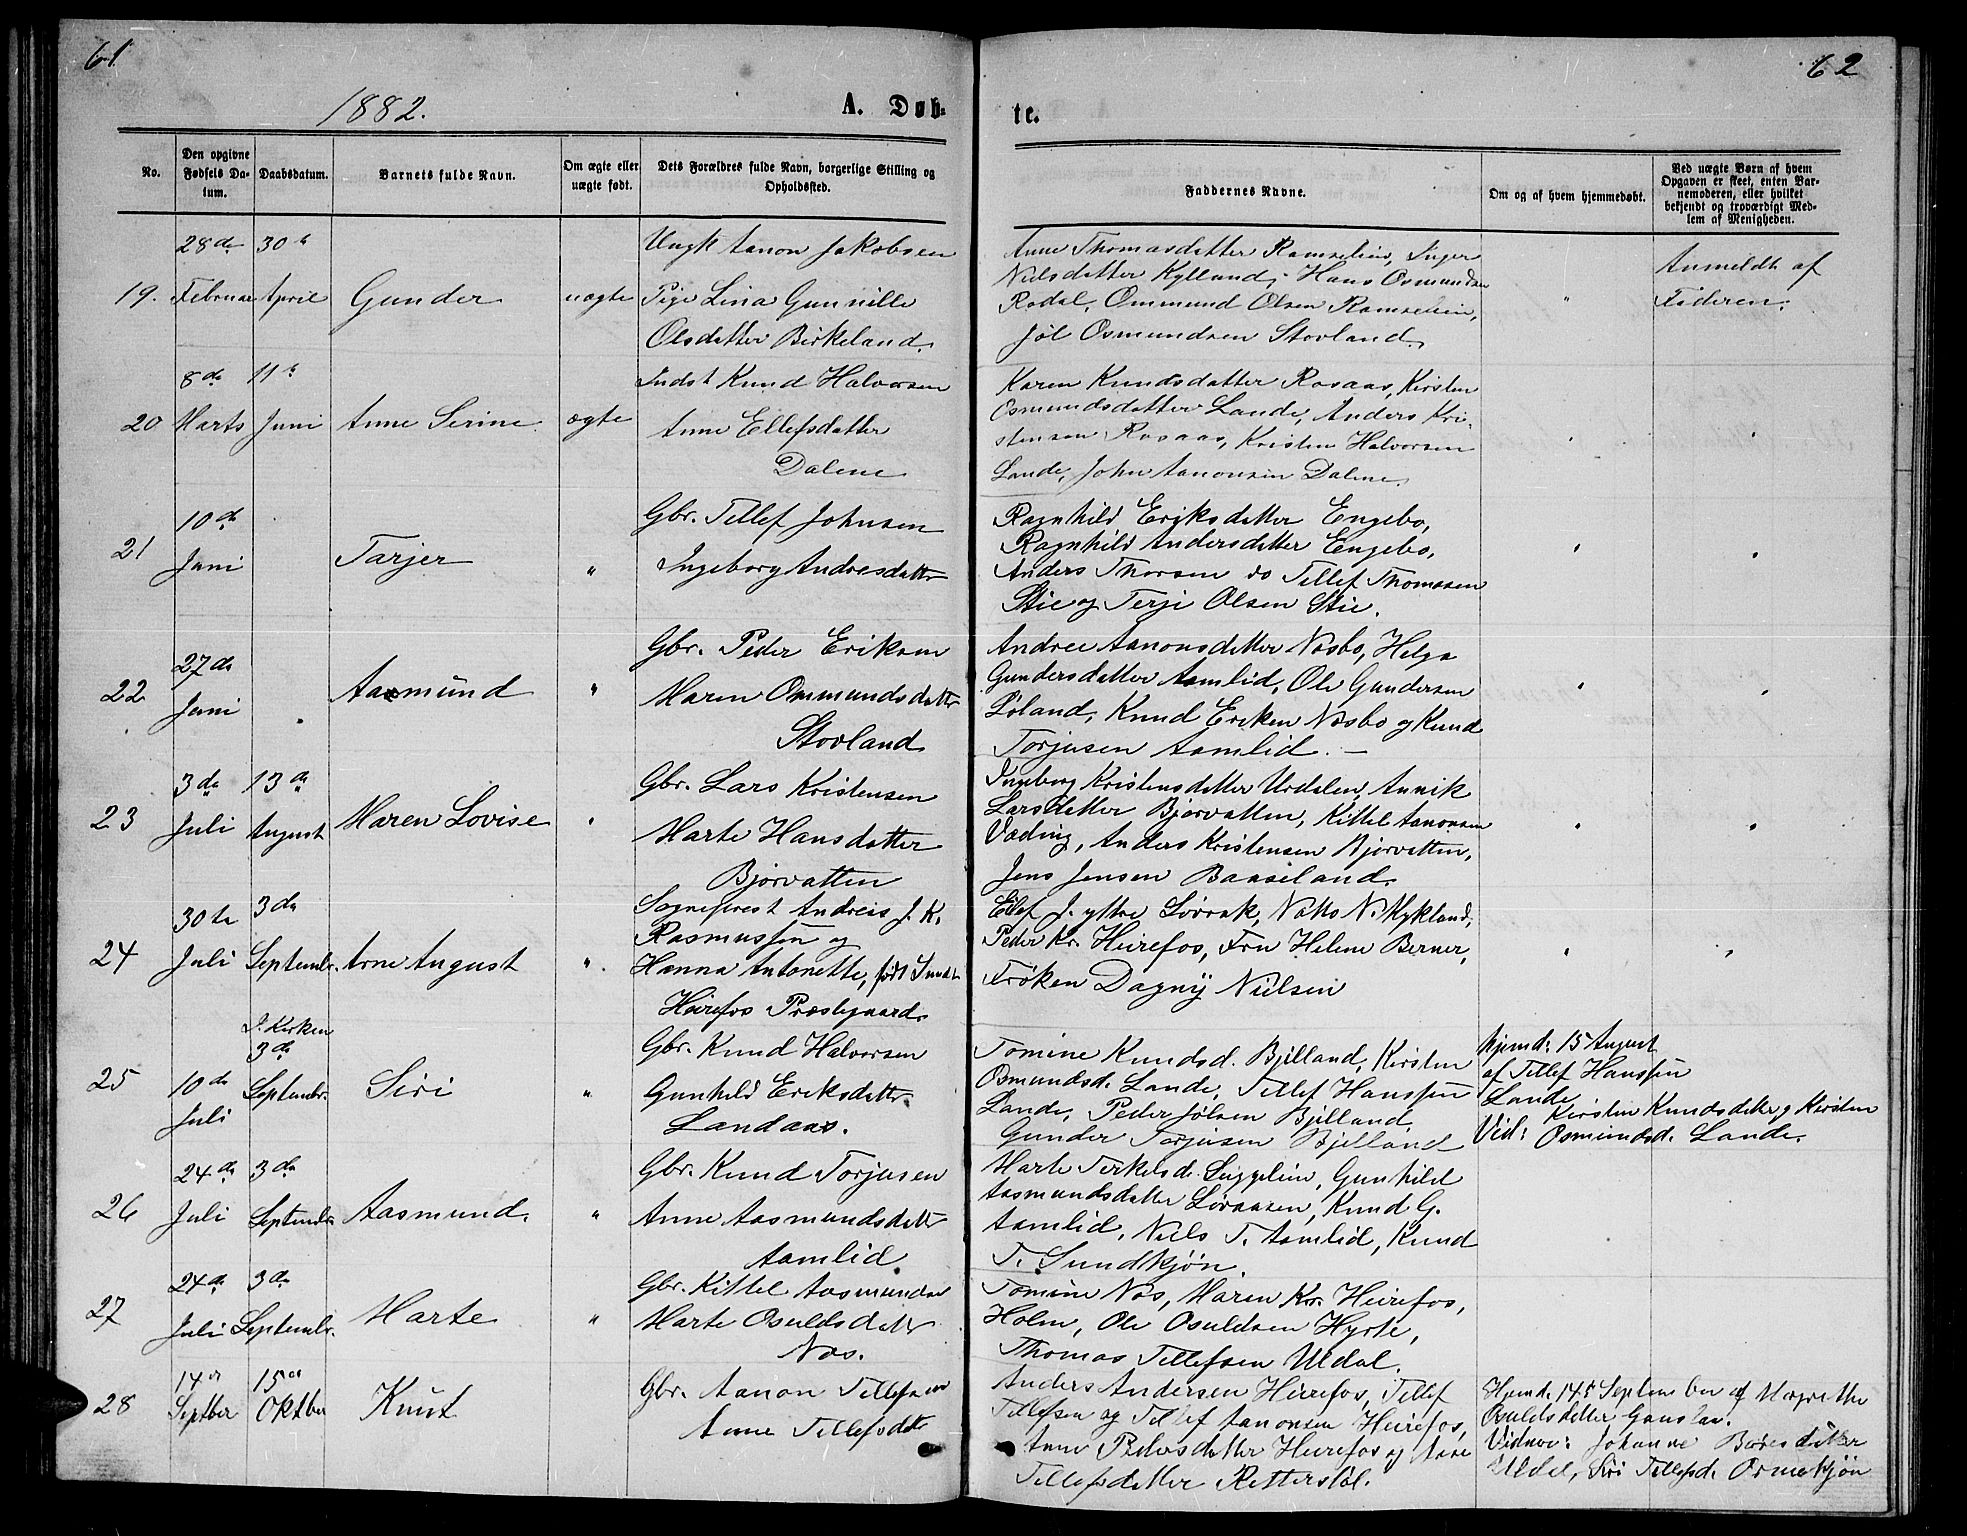 61
62
1882.
A. Døb-
te.
No.
Den opgivne Fødsels Da-tum.
Daabsdatum.
Barnets fulde Navn.
Om ægte eller uægte født.
Dets Forældres fulde Navn, borgerlige Stilling og Opholdssted.
Faddernes Navne.
Om og af hvem hjemmedøbt.
Ved uægte Børn af hvem Opgaven er skeet, enten Bar-nemoderen, eller hvilket bekjendt og troværdigt Med-lem af Menigheden.
19.
28de Februar
30te April
Gunder
uægte
Ungk Aanon Jakobsen
Pige Lina Gunnille
Olsdatter Birkeland.
Anne Thomasdatter Ramselien, Inger
Nielsdatter Kylland, Hans Osmundsen
Rodal, Ommund Olsen Ramselien,
Jøl Osmundsen Stovland.
"
Anmeldt af
Faderen.
20
8de Marts
11te Juni
Anne Serine
ægte
Indst Knud Halvorsen
Anne Ellefsdatter
Dalene
Karen Knudsdatter Rosaas, Kirsten
Osmundsdatter Lande, Anders Kri-
stensen Rosaas, Kristen Halvorsen
Lande, John Aanonsen Dalene.
21
10de Juni
Tarjer
"
Gbr. Tellef Johnsen
Ingeborg Andresdatter
Ragnhild Eriksdatter Engebo,
Ragnhild Andersdatter Engebo,
Anders Thorsen do Tellef Thomasen
Stie og Terje Olsen Stie.
22
27de Juni
Aasmund
"
Gbr. Peder Eriksen
Maren Ommundsdatter
Stovland
Andree Aanonsdatter Næsbo, Helga
Gundersdatter Aamlid, Ole Gundersen
Løland, Knud Ericken Næsbo og Knud
Torjusen Aamlid.
23
3de Juli
13de August
Maren Lovise
"
Gbr. Lars Kristensen
Marte Hansdatter
Bjorvatten
Ingeborg Kristensdatter Urdalen, Annik
Larsdatter Bjorvatten, Kittel Aanonsen
Væding, Anders Kristensen Bjorvatten,
Jens Jensen Baaseland.
24
30te Juli
3de Septembr.
Arne August
"
Sogneprest Andreis J. K.
Rasmussen og
Hanna Antonette, født Smidt
Heirefos Præstegaard.
Ellef J. yttre Lørrak, Natto N. Kykland,
Peder Kr. Heirefos, Fru Helene Berner,
Frøken Dagny Nielsen
25
10de Juli
I. Kirken 3de Septembr.
Siri
"
Gbr. Knud Halvorsen
Gunhild Eriksdatter
Landaas.
Tomine Knudsd. Bjelland, Kirsten
Osmundsd. Lande, Tellef Hanssøn
Lande, Peder Jølsen Bjelland
Gunder Torjusen Bjelland
hjemd: 15 August
af Tellef Hanssøn
Lande
Vid: Kirsten Knudsdatter og Kirsten
Osmundsd. Lande.
26
24de Juli
3de Septembr
Aasmund.
"
Gbr. Knud Torjusen
Anne Aasmundsdatter
Aamlid.
Marte Terkelsd. Seggelien, Gunhild
Aasmundsdatter Løvaasen, Knud G.
Aamlid, Niels T. Aamlid, Knud
T. Sundkjøn.
27
24de Juli
3de Septembr.
Marte
"
Gbr. Kittel Aasmundsen
Marte Osuldsdatter
Næs.
Tomine Næs, Maren Kr. Heirefos,
Holm, Ole Osuldsen Hyrte,
Thomas Tellefsen Uldal.
28
14de Septber
15de Oktber
Knut
Gbr. Aanon Tellefsen
Anne Tellefsdtr
Anders Andersen Heirefos, Tellef
Tellefsen og Tellef Aanonsen Heirefos,
Anne Pedersdatter Heirefos og Aase
Tellefsdatter Retterstøl.
Hjemd. 14de September af Margrethe
Osuldsdatter
Vidner: Johanne Boresdatter
Uldal, Siri Tellefsd. Ormekjøn